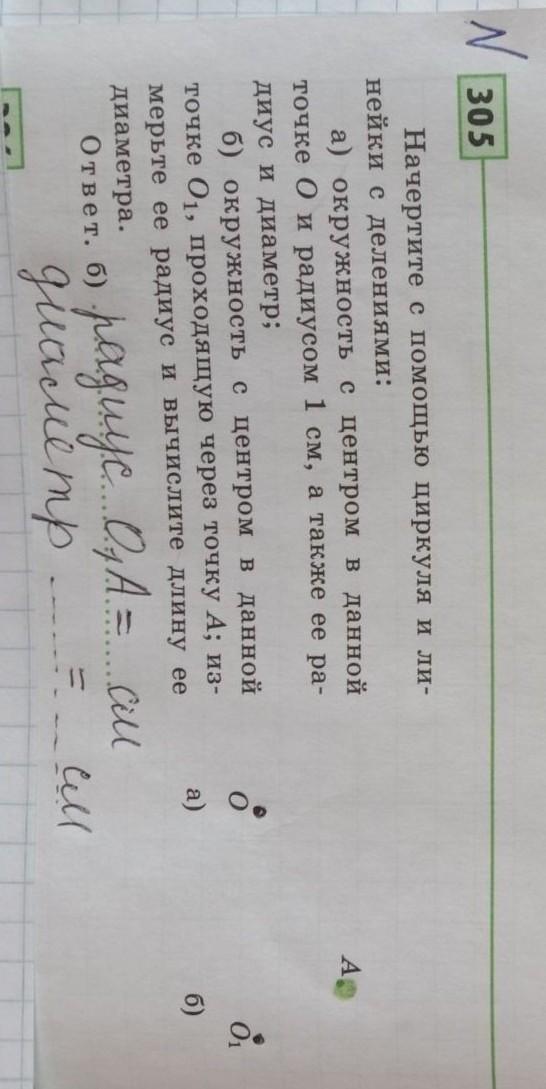 N
305
Начертите с помощью циркуля и ли-
нейки с делениями:
а) окружность с центром в данной
точке O и радиусом 1 см, а также ее ра-
диус и диаметр;
б) окружность с центром в данной
точке O₁, проходящую через точку A; из-
мерьте ее радиус и вычислите длину ее
диаметра.
Ответ. б) радиус O₁A = см
диаметр = см
A
O
O₁
а)
б)